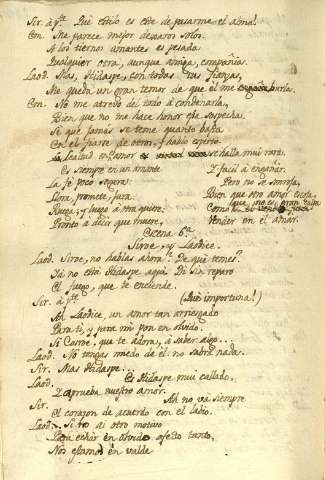 Sir. á pte Qué estilo es este de pesarme el alma!
Con. Me parece mejor dexaros solos.
A los tiernos amantes es pesada
Qualquier otra, aunque amiga, compañia.
Laod. Mas, Hidaspe, con todas tus fianzas,
Me queda un gran temor de que él me burla.
Con. No me atrevo del todo á condenarla,
Bien que no me hace honor esa sospecha.
Sé que jamás se teme quanto basta
En el fiarse de otros, y habló esperto.
Lealtad en amor se halla mui rara.
Es siempre en un amante
Y facil á engañar.
La fé poco segura:
Pero no se sonroja,
Llora, promete, jura
Bien que otro amor escoja,
Ruega, y luego á otra quiere:
que no es gran falta
Pronto á decir que muere,
Vender en el amar.
Scena 6.ª
Siroe, y Laodice.
Laod. Siroe, no hablas ahora? De qué temes?
Yá no está Hidaspe aqui. Dí sin reparo
El fuego, que te enciende.
Sir. á pte (Qué importuna!)
Ah Laodice, un amor tan arriesgado
Para tí, y para mí pon en olvido.
Si Cosroe, que te adora, á saber algo...
Laod. No tengas miedo de él: no sabrá nada.
Sir. Mas Hidaspe...
Laod. Es Hidaspe mui callado,
Y aprueba nuestro amor.
Sir. Ah no va siempre
El corazon de acuerdo con el labio.
Laod. Si no ai otro motivo
Para echar en olvido afecto tanto,
Nos estamos en valde